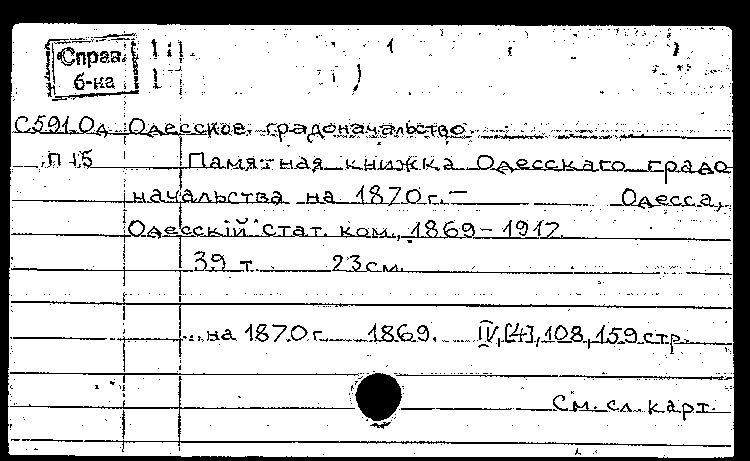 Справ.
б-ка
С591.Од Одесское градоначальство
П15 Памятная книжка Одесскаго градо
начальства на 1870 г. — Одесса,
Одесскій стат. ком., 1869 - 1917.
39 т. 23 см.
...на 1870 г. 1869. IV, [4], 108, 159 стр.
См. сл. карт.